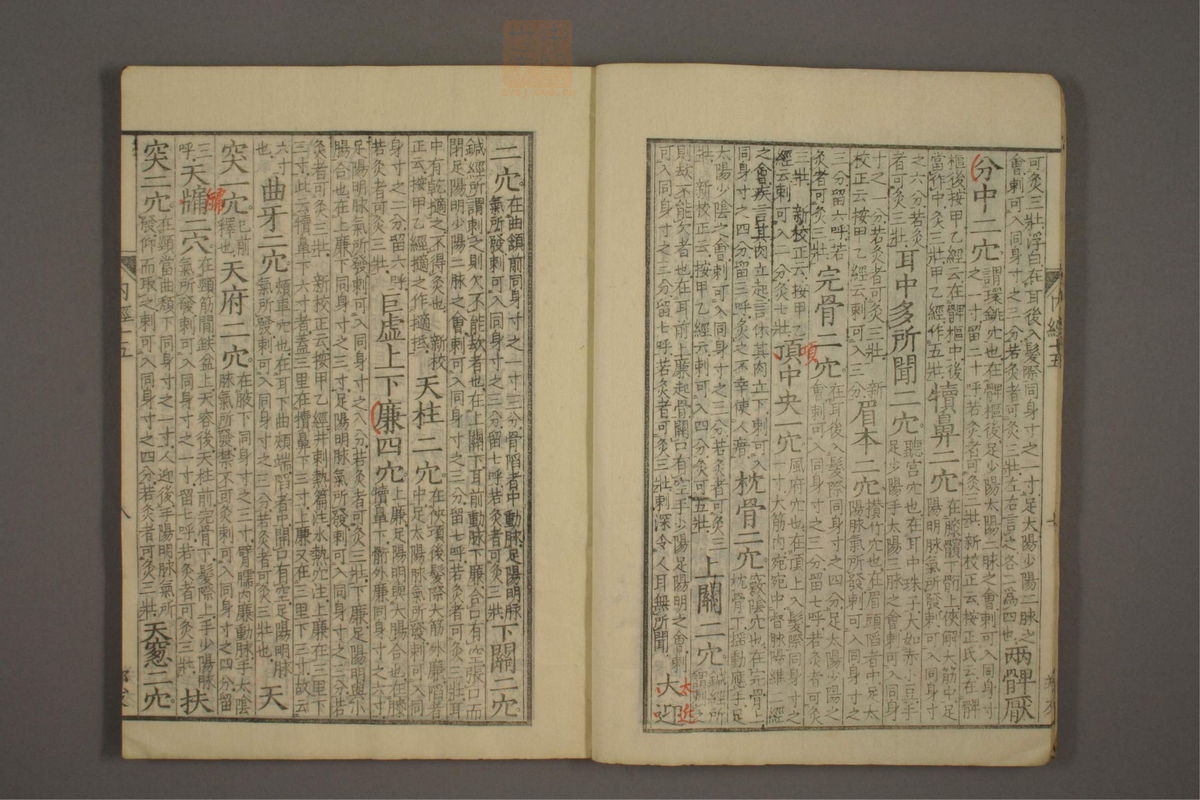 可灸三壯浮白在耳後入髮際同身寸之一寸足太陽少陽二脉之
會刺可入同身寸之三分若灸者可灸三壯左右言之各二爲四也
兩髀厭
分中二穴
謂環銚穴也在髀樞後足少陽太陽二脉之會刺可入同身寸
之一寸留二十呼若灸者可灸三壯新校正云按王氏云在髀
樞後按甲乙經云在髀樞中後
當作中灸三壯甲乙經作五壯
犢鼻二穴
在膝髕下胻上俠解大筋中足
陽明脉氣所發刺可入同身寸
之六分若灸
者可灸三壯
耳中多所聞二穴
聽宮穴也在耳中珠子大如赤小豆手
足少陽手太陽三脉之會刺可入同身
寸之一分若灸者可灸三壯 新
校正云按甲乙經云刺可入三分
眉本二穴
攢竹穴也在眉頭陷者中足太
陽脉氣所發刺可入同身寸之
三分留六呼若
灸者可灸三壯
完骨二穴
在耳後入髮際同身寸之四分足太陽少陽之
會刺可入同身寸之三分留七呼若灸者可灸
三壯 新校正云按甲乙
經云刺可入 分灸七壯
頂中央一穴
項
風府穴也在頂上入髮際同身寸之
一寸大筋內宛宛中督脉陽維二經
之會疾言其肉立起言休其肉立下刺可入
同身寸之四分留三呼灸之不幸使人瘖
枕骨二穴
竅陰穴也在完骨上
枕骨下搖動應手足
太陽少陰之會刺可入同身寸之三分若灸者可灸三
壯 新校正云按甲乙經云刺可入四分灸可五壯
上關二穴
鍼經所
謂刺之
則㰦不能欠者也在耳前上廉起骨開口有空手少陽足陽明之會刺
可入同身寸之三分留七呼若灸者可灸三壯刺深令人耳無所聞
大迎
二穴
在曲頷前同身寸之一寸三分骨陷者中動脉足陽明脉
氣所發刺可入同身寸之三分留七呼若灸者可灸三壯
下關二穴
鍼經所謂刺之則欠不能㰦者也在上關下耳前動脉下廉合口有空張口而
閉足陽明少陽二脉之會刺可入同身寸之三分留七呼若灸者可灸三壯耳
中有乾擿之不得灸也 新校
正云按甲乙經擿之作擿抵
天柱二穴
在俠項後髮際大筋外廉陷者
中足太陽脉氣所發刺可入同
身寸之二分留六呼
若灸者可灸三壯
巨虛上下廉四穴
上廉足陽明與大腸合也在膝
犢鼻下胻外廉同身寸之六寸
足陽明脉氣所發刺可入同身寸之八分若灸者可灸三壯下廉足陽明與小
腸合也在上廉下同身寸之三寸足陽明脉氣所發刺可入同身寸之三分若
灸者可灸三壯 新校正云按甲乙經并刺熱篇注水熱穴注上廉在三里下
三寸此云犢鼻下六寸者蓋三里在犢鼻下三寸上廉又在三里下三寸故云
六寸
也
曲牙二穴
頰車穴也在耳下曲頰端陷者中開口有空足陽明脉
氣所發刺可入同身寸之三分若灸者可灸三壯也
天
突一穴
已前
釋也
天府二穴
在腋下同身寸之三寸臂臑內廉動脉手太陰
脉氣所發禁不可灸刺可入同身寸之四分留
三
呼
天牖二穴
在頸筋間缺盆上天容後天柱前完骨下髮際上手少陽脉
氣所發刺可入同身寸之一寸留七呼若灸者可灸三壯
扶
突二穴
在頸當曲頰下同身寸之一寸人迎後手陽明脉氣所
發仰而取之刺可入同身寸之四分若灸者可灸三壯
天窻二穴
内經十五